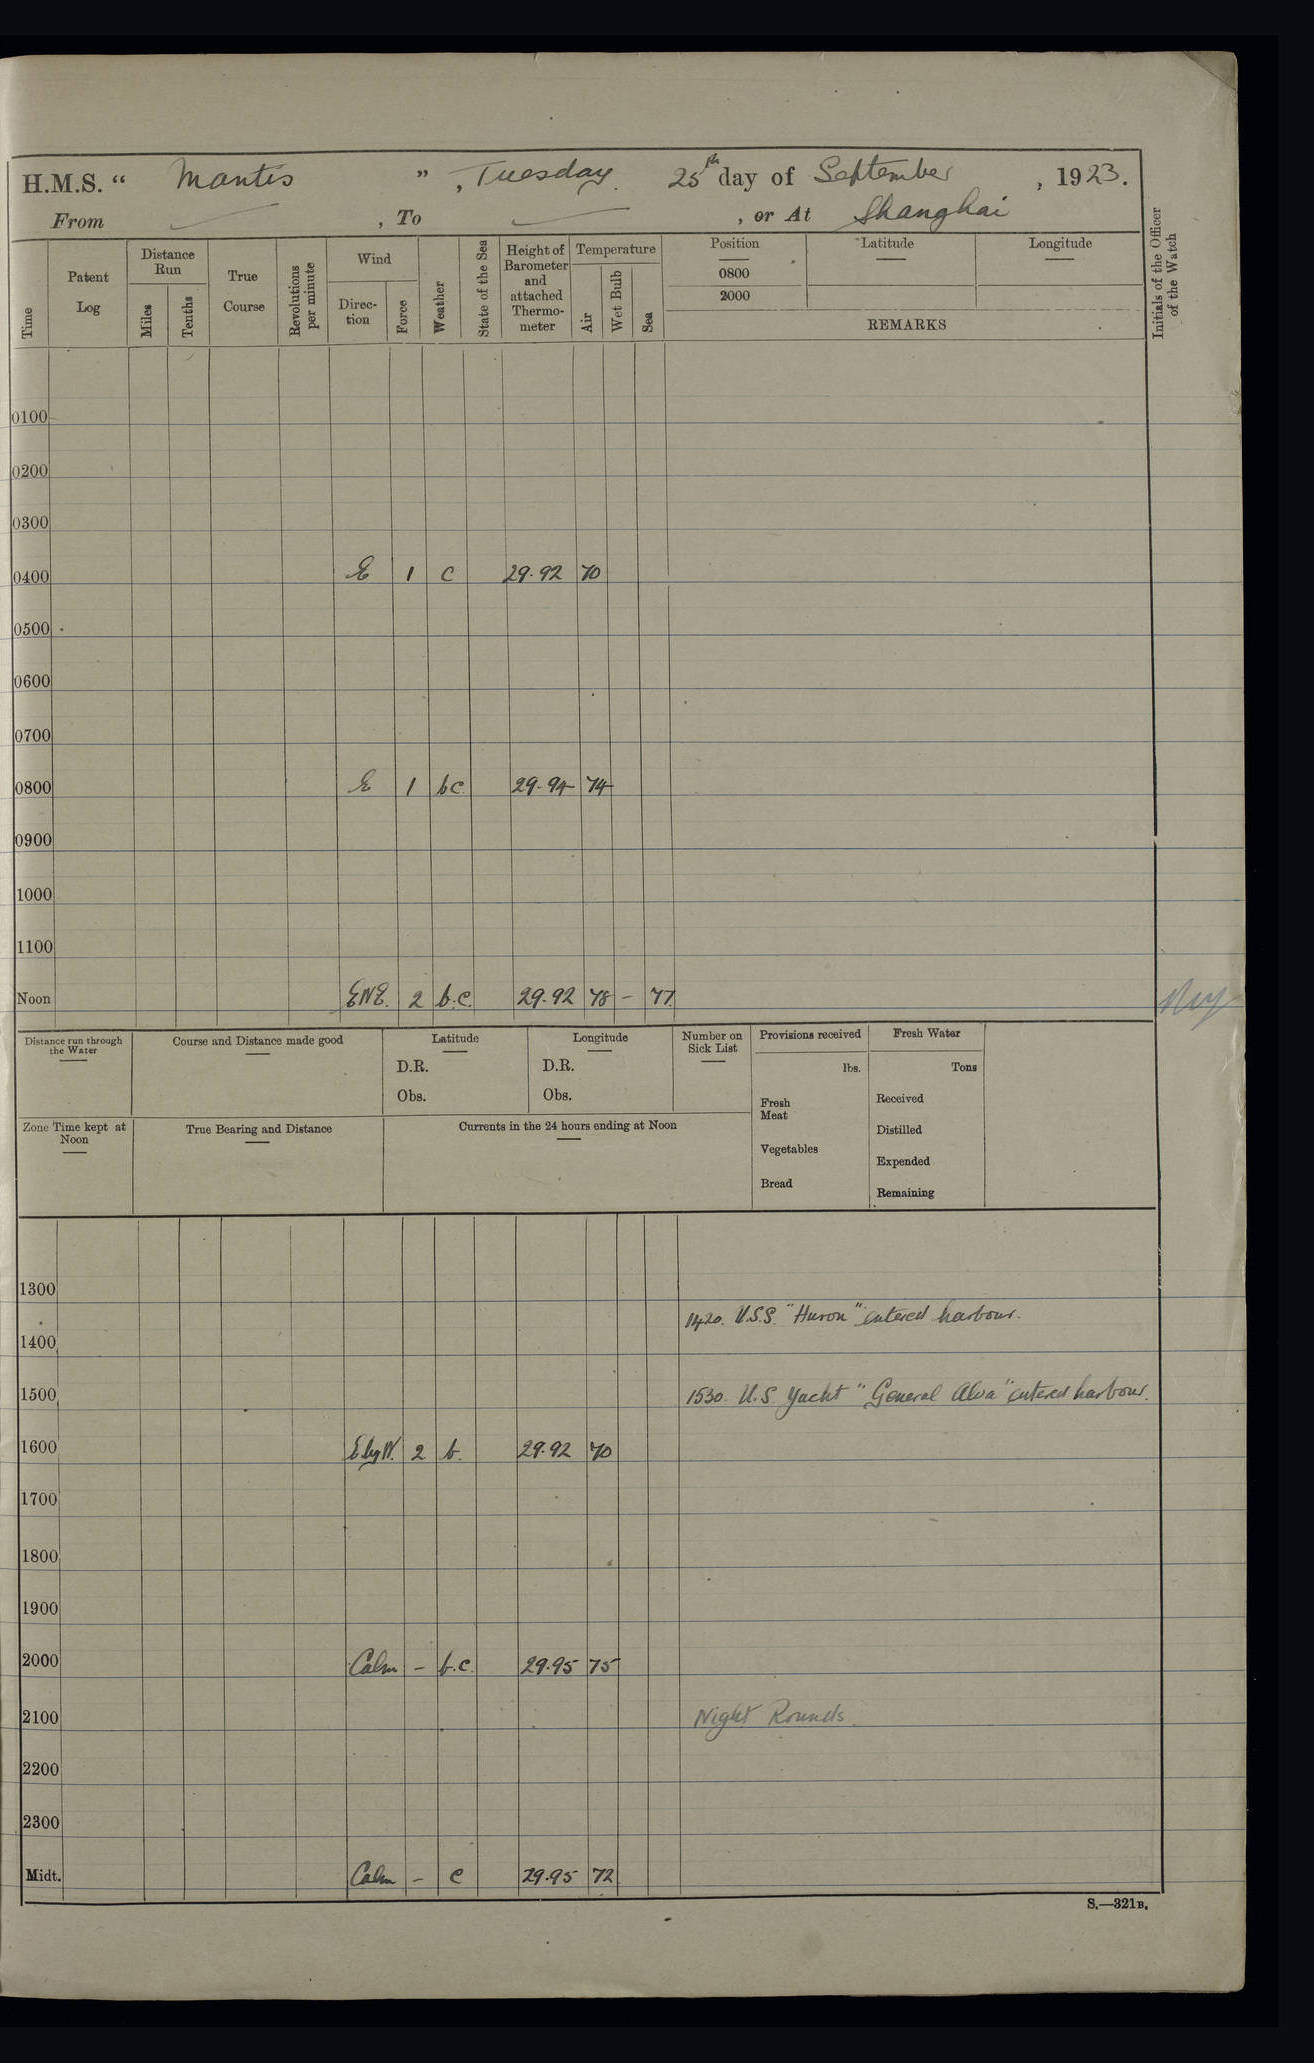 H.M.S. “ Mantis ” , Tuesday 25th day of September , 1923.
From , To , or At Shanghai
Time
Patent Log
Distance Run
Miles
Tenths
True Course
Revolutions per minute
Wind
Direc- tion
Force
Weather
State of the Sea
Height of Barometer and attached Thermo- meter
Temperature
Air
Wet Bulb
Sea
Position
0800
2000
Latitude
Longitude
REMARKS
Initials of the Officer of the Watch
0100
0200
0300
0400 E 1 c 29.92 70
0500
0600
0700
0800 E 1 bc 29.94 74
0900
1000
1100
Noon ENE. 2 b.c. 29.92 78 – 77
Distance run through the Water
Course and Distance made good
Latitude
D.R.
Obs.
Longitude
D.R.
Obs.
Number on Sick List
Provisions received
lbs.
Fresh Meat
Vegetables
Bread
Fresh Water
Tons
Received
Distilled
Expended
Remaining
Zone Time kept at Noon
True Bearing and Distance
Currents in the 24 hours ending at Noon
1300
1420. U.S.S. "Huron" entered harbour.
1400
1500 1530. U.S. Yacht "General Alva" entered harbour.
1600 E by N. 2 b. 29.92 70
1700
1800
1900
2000 Calm – b.c. 29.95 75
2100 Night Rounds.
2200
2300
Midt. Calm – c 29.95 72
S.—321B.